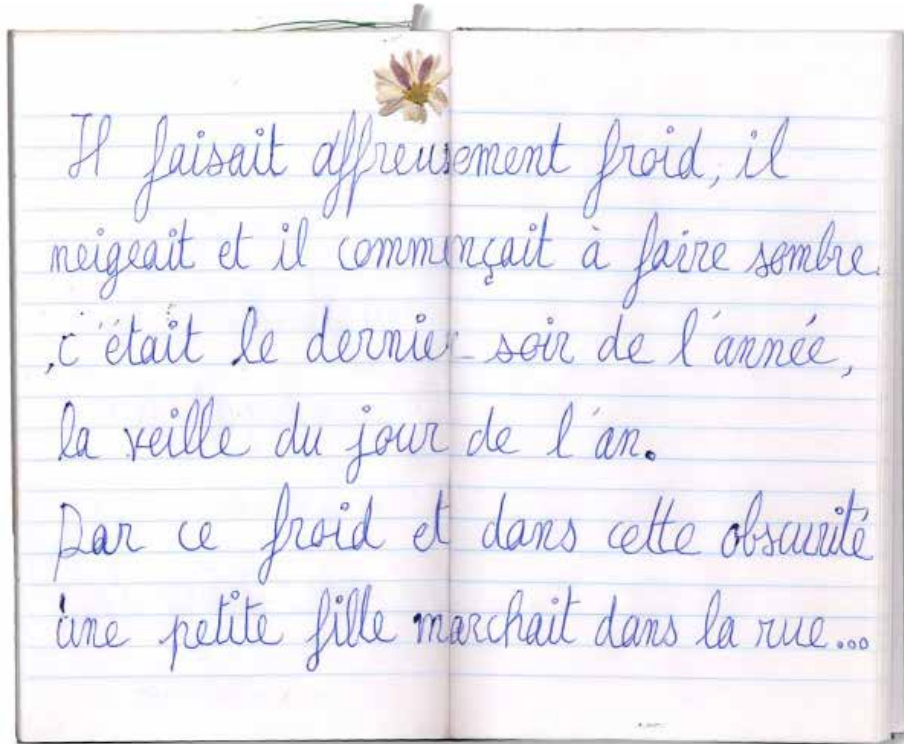 Il faisait affreusement froid, il
neigeait et il commençait à faire sombre.
,c'était le dernier soir de l'année,
la veille du jour de l'an.
Par ce froid et dans cette obscurité
une petite fille marchait dans la rue...